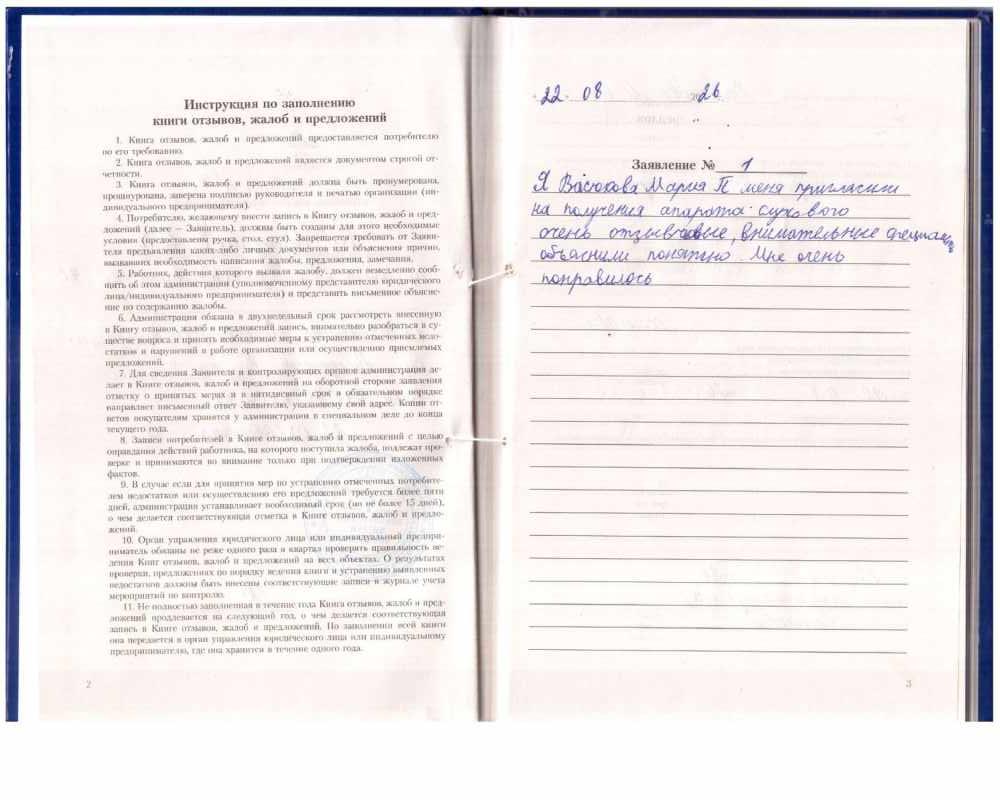 Инструкция по заполнению
книги отзывов, жалоб и предложений
1. Книга отзывов, жалоб и предложений предоставляется потребителю
по его требованию.
2. Книга отзывов, жалоб и предложений является документом строгой от-
четности.
3. Книга отзывов, жалоб и предложений должна быть пронумерована,
прошнурована, заверена подписью руководителя и печатью организации (ин-
дивидуального предпринимателя).
4. Потребителю, желающему внести запись в Книгу отзывов, жалоб и пред-
ложений (далее – Заявитель), должны быть созданы для этого необходимые
условия (предоставлены ручка, стол, стул). Запрещается требовать от Заяви-
теля предъявления каких-либо личных документов или объяснения причин,
вызвавших необходимость написания жалобы, предложения, замечания.
5. Работник, действия которого вызвали жалобу, должен немедленно сооб-
щить об этом администрации (уполномоченному представителю юридического
лица/индивидуального предпринимателя) и представить письменное объясне-
ние по содержанию жалобы.
6. Администрация обязана в двухнедельный срок рассмотреть внесенную
в Книгу отзывов, жалоб и предложений запись, внимательно разобраться в су-
ществе вопроса и принять необходимые меры к устранению отмеченных недо-
статков и нарушений в работе организации или осуществлению приемлемых
предложений.
7. Для сведения Заявителя и контролирующих органов администрация де-
лает в Книге отзывов, жалоб и предложений на оборотной стороне заявления
отметку о принятых мерах и в пятидневный срок в обязательном порядке
направляет письменный ответ Заявителю, указавшему свой адрес. Копии от-
ветов покупателям хранятся у администрации в специальном деле до конца
текущего года.
8. Записи потребителей в Книге отзывов, жалоб и предложений с целью
оправдания действий работника, на которого поступила жалоба, подлежат про-
верке и принимаются во внимание только при подтверждении изложенных
фактов.
9. В случае если для принятия мер по устранению отмеченных потребите-
лем недостатков или осуществлению его предложений требуется более пяти
дней, администрация устанавливает необходимый срок (но не более 15 дней),
о чем делается соответствующая отметка в Книге отзывов, жалоб и предло-
жений.
10. Орган управления юридического лица или индивидуальный предпри-
ниматель обязаны не реже одного раза в квартал проверять правильность ве-
дения Книг отзывов, жалоб и предложений на всех объектах. О результатах
проверки, предложениях по порядку ведения книги и устранению выявленных
недостатков должны быть внесены соответствующие записи в журнале учета
мероприятий по контролю.
11. Не полностью заполненная в течение года Книга отзывов, жалоб и пред-
ложений продлевается на следующий год, о чем делается соответствующая
запись в Книге отзывов, жалоб и предложений. По заполнении всей книги
она передается в орган управления юридического лица или индивидуальному
предпринимателю, где она хранится в течение одного года.
2
22. 08 26
Заявление № 1
Я Васюкова Мария П меня пригласили
на получения апарата слухового
очень отзывчивые, внимательные специал
объяснили понятно Мне очень
понравилось
3